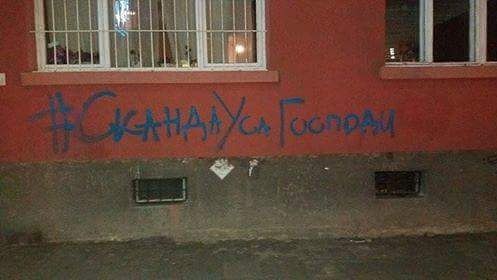 #СкандаУса Господи